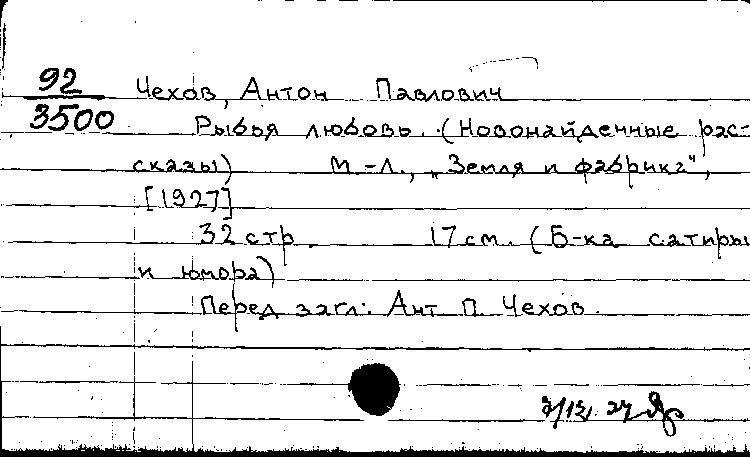 92
3500
Чехов, Антон Павлович
Рыбья любовь. (Новонайденные рас-
сказы) М.-Л., „Земля и фабрика",
[1927]
32 стр. 17 см. (Б-ка сатиры
и юмора)
Перед загл: Ант. П. Чехов.